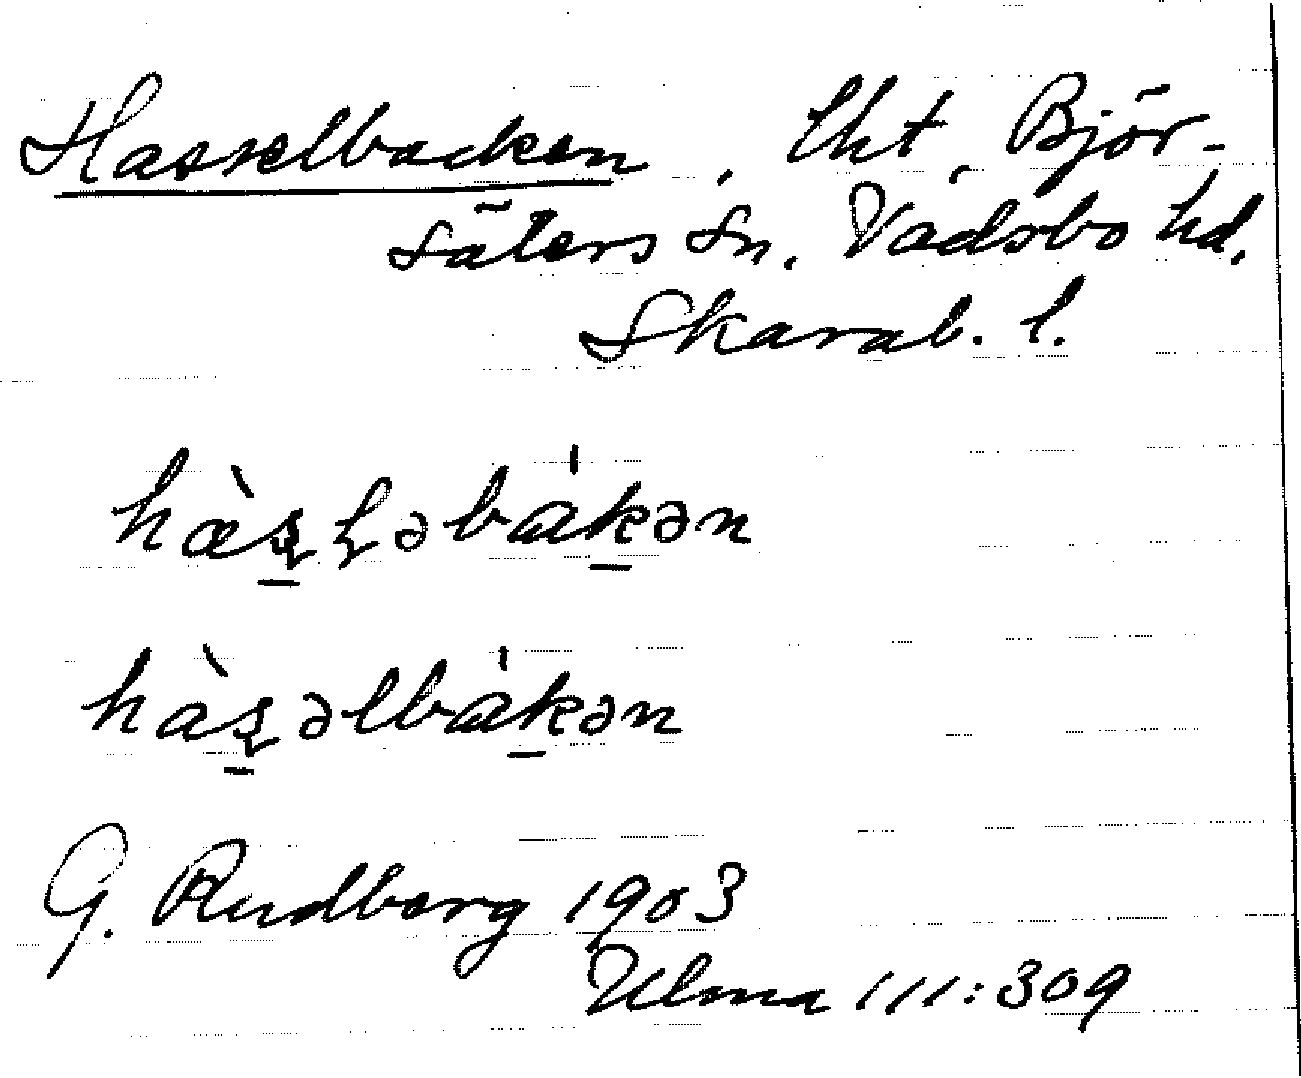 Hasselbacken, lht, Björ-
säters sn. Vadsbo hd.
Skarab. l.
hæ̀s̠ɭəbákə̠n
hàs̠əlbák̠ən
G. Rudberg 1903
Ulma 111:309